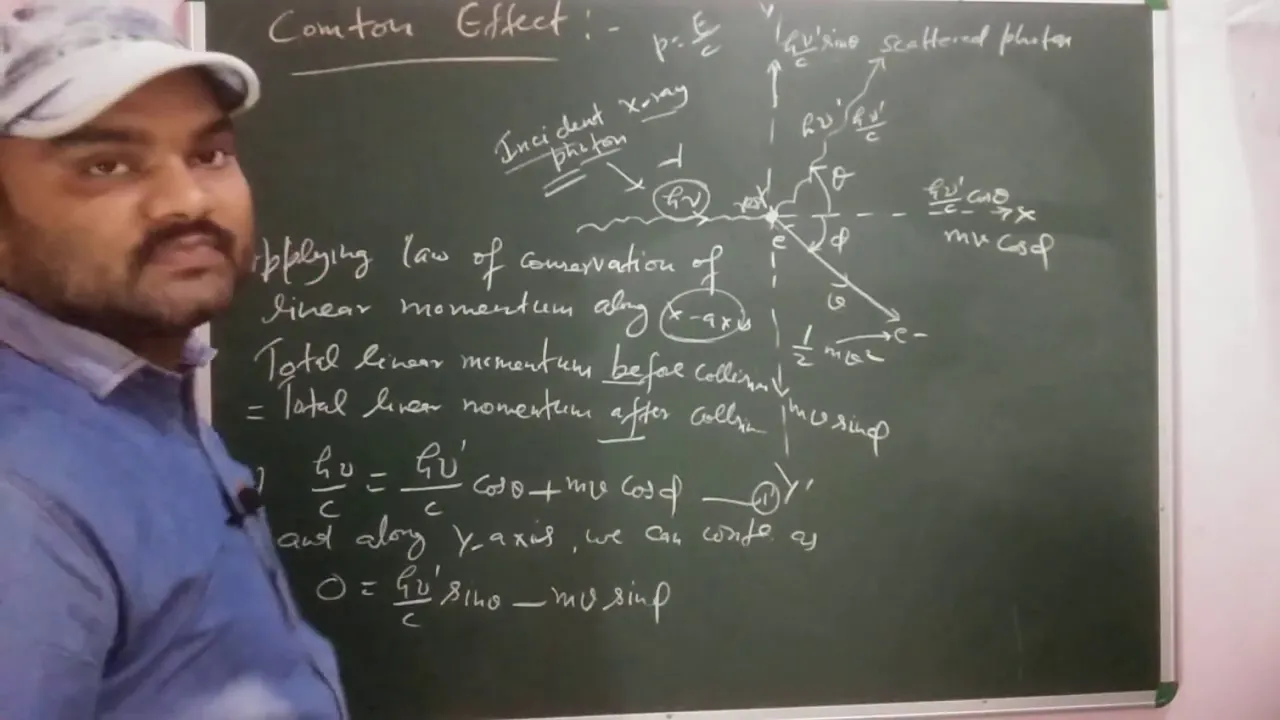 Comton Effect :-
p = E/c
Y
hν'/c sinθ
scattered photon
Incident x-ray
photon
hν
hν'
hν'/c
θ
rest
e
φ
hν'/c cosθ
x
mv cosφ
v
e-
1/2 mv²
applying law of conservation of
linear momentum along x-axis
Total linear momentum before collision
= Total linear momentum after collisin
mv sinφ
hν/c = hν'/c cosθ + mv cosφ — 1
Y'
and along Y-axis, we can write as
0 = hν'/c sinθ - mv sinφ